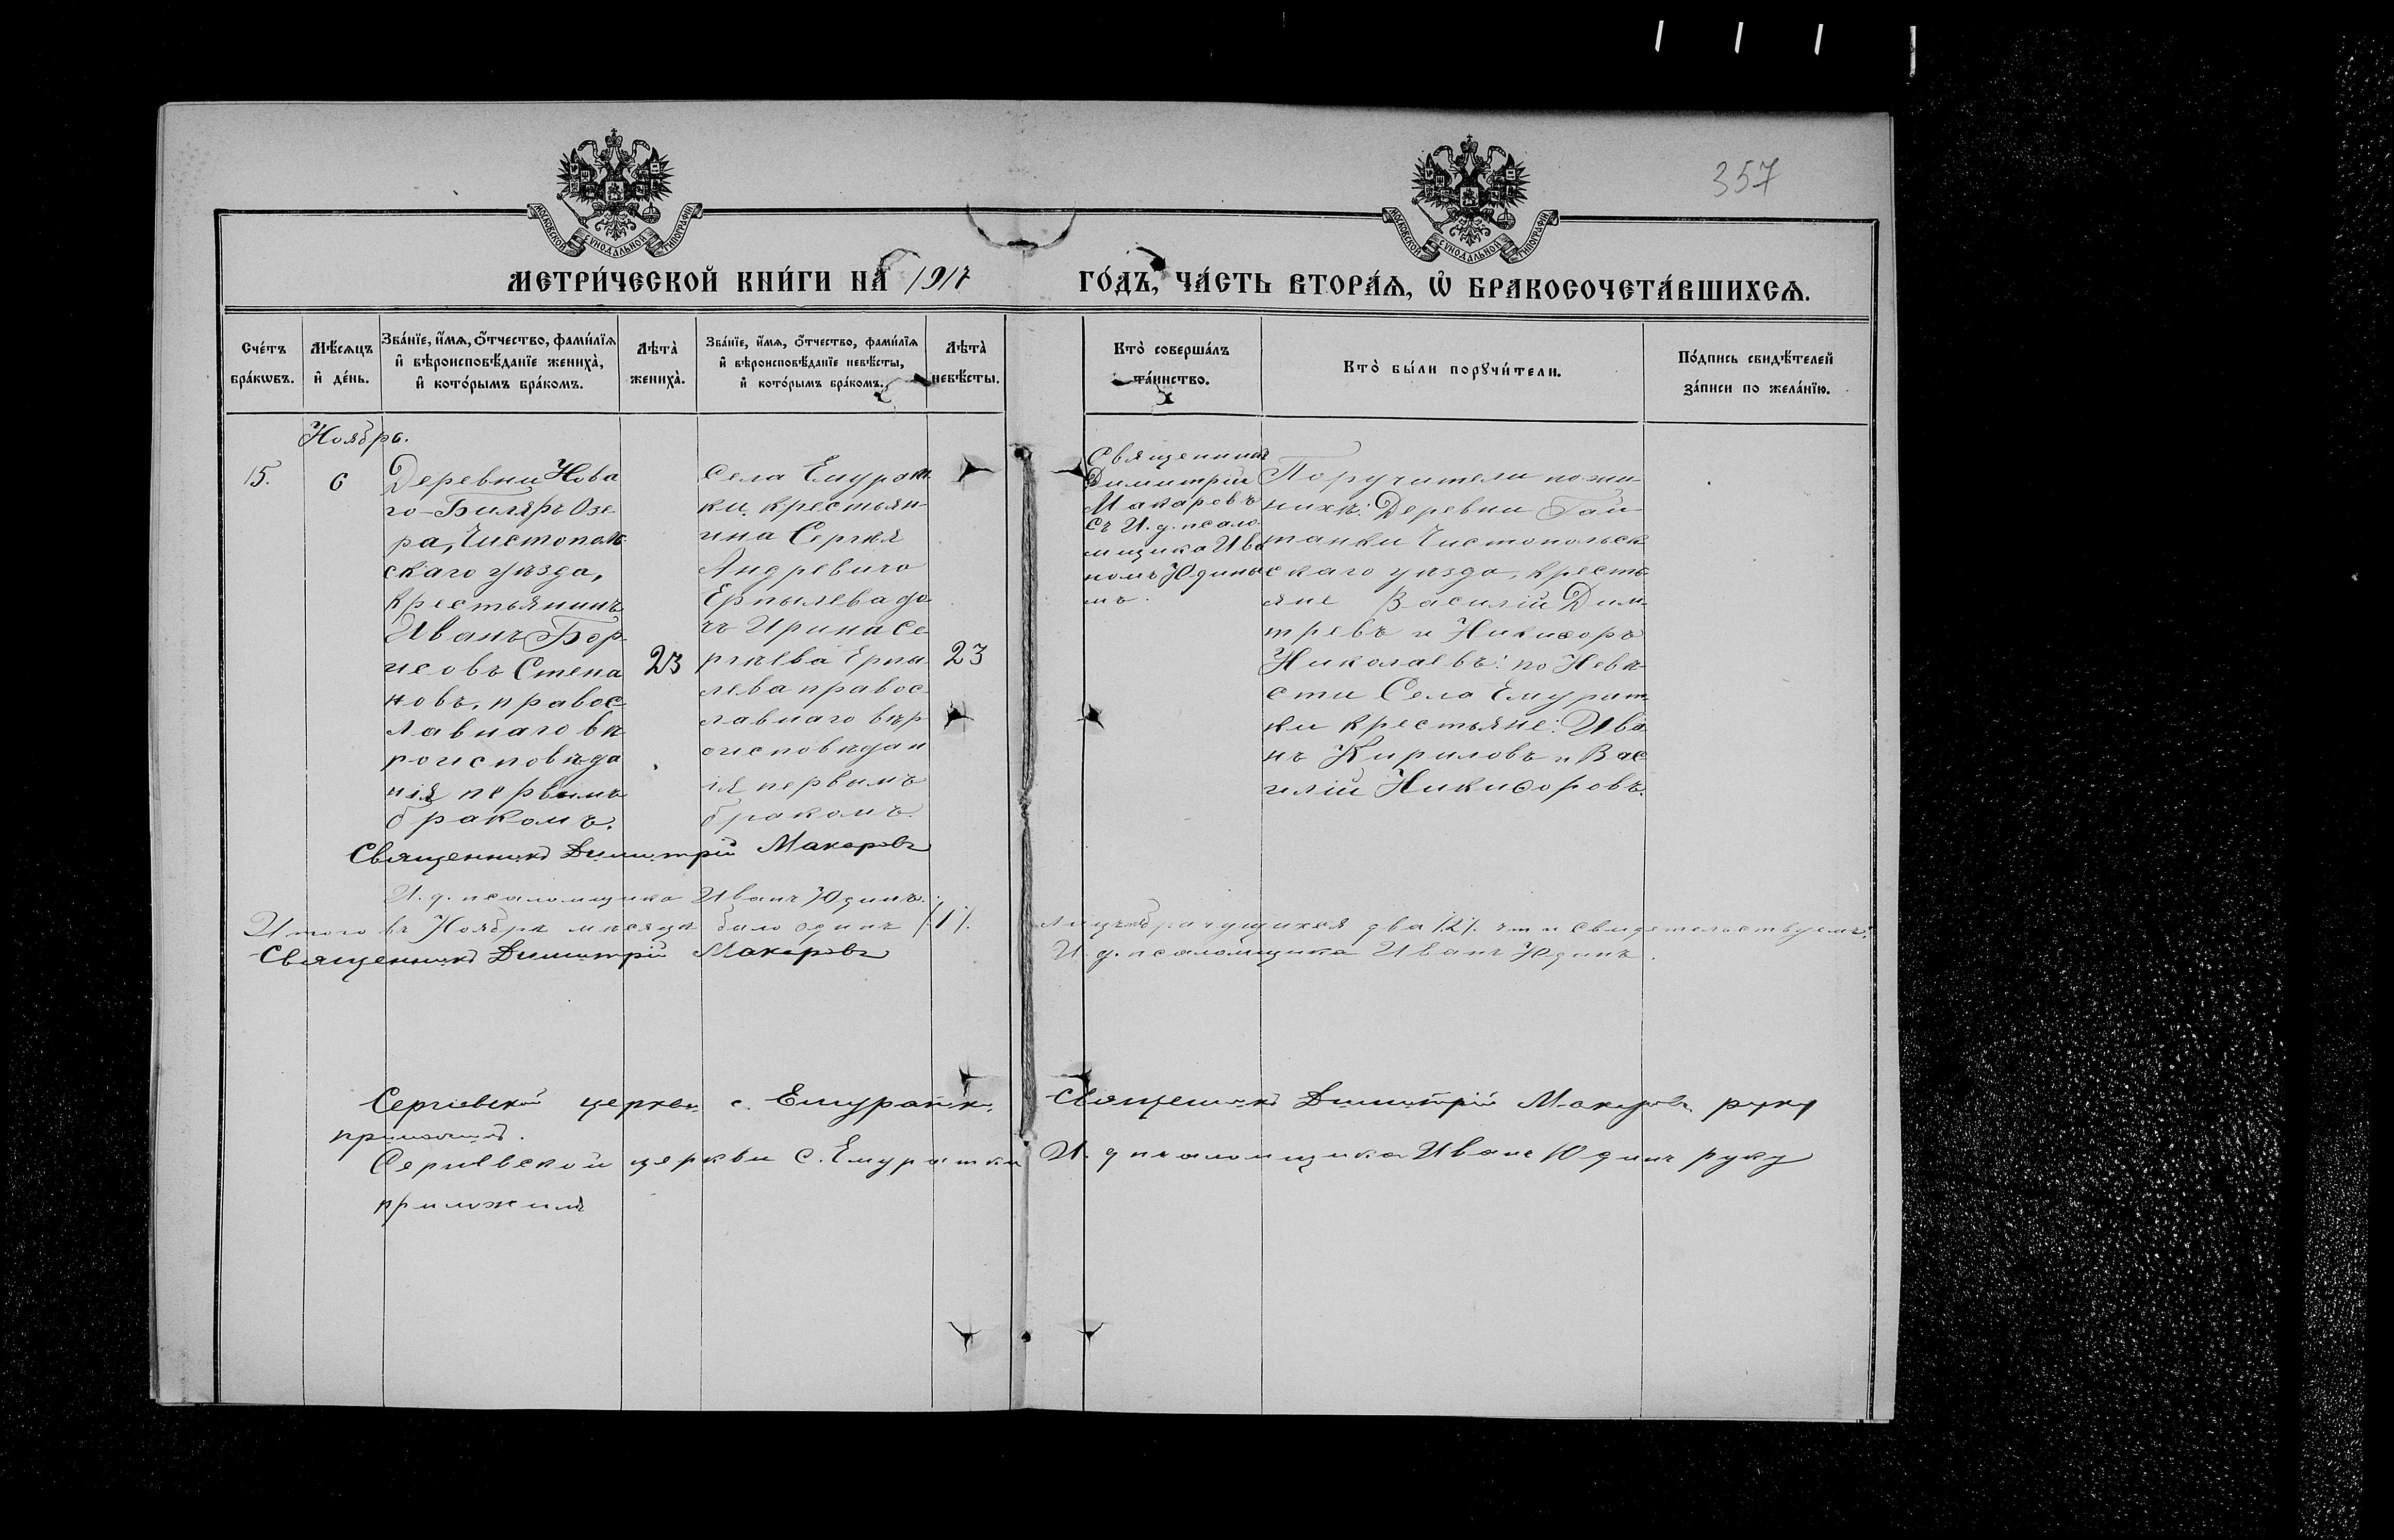 357
МОСКОВСКОЙ СУНОДАЛЬНОЙ ТИПОГРАФІИ
МОСКОВСКОЙ СУНОДАЛЬНОЙ ТИПОГРАФІИ
МЕТРИ́ЧЕСКОЙ КНИ́ГИ НА 1917 ГО́ДЪ, ЧА́СТЬ ВТОРА́Ѧ, Ѡ БРАКОСОЧЕТА́ВШИХСѦ.
Сче́тъ
бра́кѡвъ.
Мѣ́сѧцъ
и де́нь.
Зва́нїе, и́мѧ, о́тчество, фами́лїѧ
и вѣроисповѣ́данїе жениха̀,
и кото́рымъ бра́комъ.
Лѣта̀
жениха̀.
Зва́нїе, и́мѧ, о́тчество, фами́лїѧ
и вѣроисповѣ́данїе невѣ́сты,
и кото́рымъ бра́комъ.
Лѣта̀
невѣ́сты.
Кто̀ соверша́лъ
та́инство.
Кто̀ бы́ли порꙋчи́тели.
По́дпись свидѣ́телей
за́писи по жела́нїю.
Ноября.
15.
6
Деревни Нова
го-Биляръ Озе-
ра, Чистополь
скаго уѣзда,
крестьянинъ
Иванъ Бор-
исовъ Степа
новъ, правос
лавнаго вѣ
роисповѣда
нія первымъ
бракомъ.
23
Села Емурат
ки крестьян-
ина Сергѣя
Андревича
Ерпылева до
чъ Ирина Се
ргѣева Ерпы
лева правос
лавнаго вѣр
оисповѣдан
ія первымъ
бракомъ.
23
Священникъ
Димитрій
Макаровъ
съ И. д. псало
мщика Ива
номъ Юдины
мъ.
Поручители по жи-
нихѣ: Деревни Гай
танки Чистопольск
скаго уѣзда, кресть
яне Василій Дим-
тревъ и Никифоръ
Николаевъ: по Невѣ-
сти Села Емурат
ки крестьяне: Ива
нъ Кириловъ и Вас
илій Никифоровъ.
Священникъ Димитрій Макаровъ
И. д. псаломщика Иванъ Юдинъ.
Итого въ Ноябрѣ месяцѣ было одинъ /1/. Лицъ брачущихся два /2/. что и свидетельствуемъ:
Священникъ Димитрій Макаровъ И. д. псаломщика Иванъ Юдинъ.
Сергіевской церкви с. Емуратки Священникъ Димитрій Макаровъ руку
приложилъ.
Сергіевской церкви С. Емуратки И. д псаломщика Иванъ Юдинъ руку
приложилъ